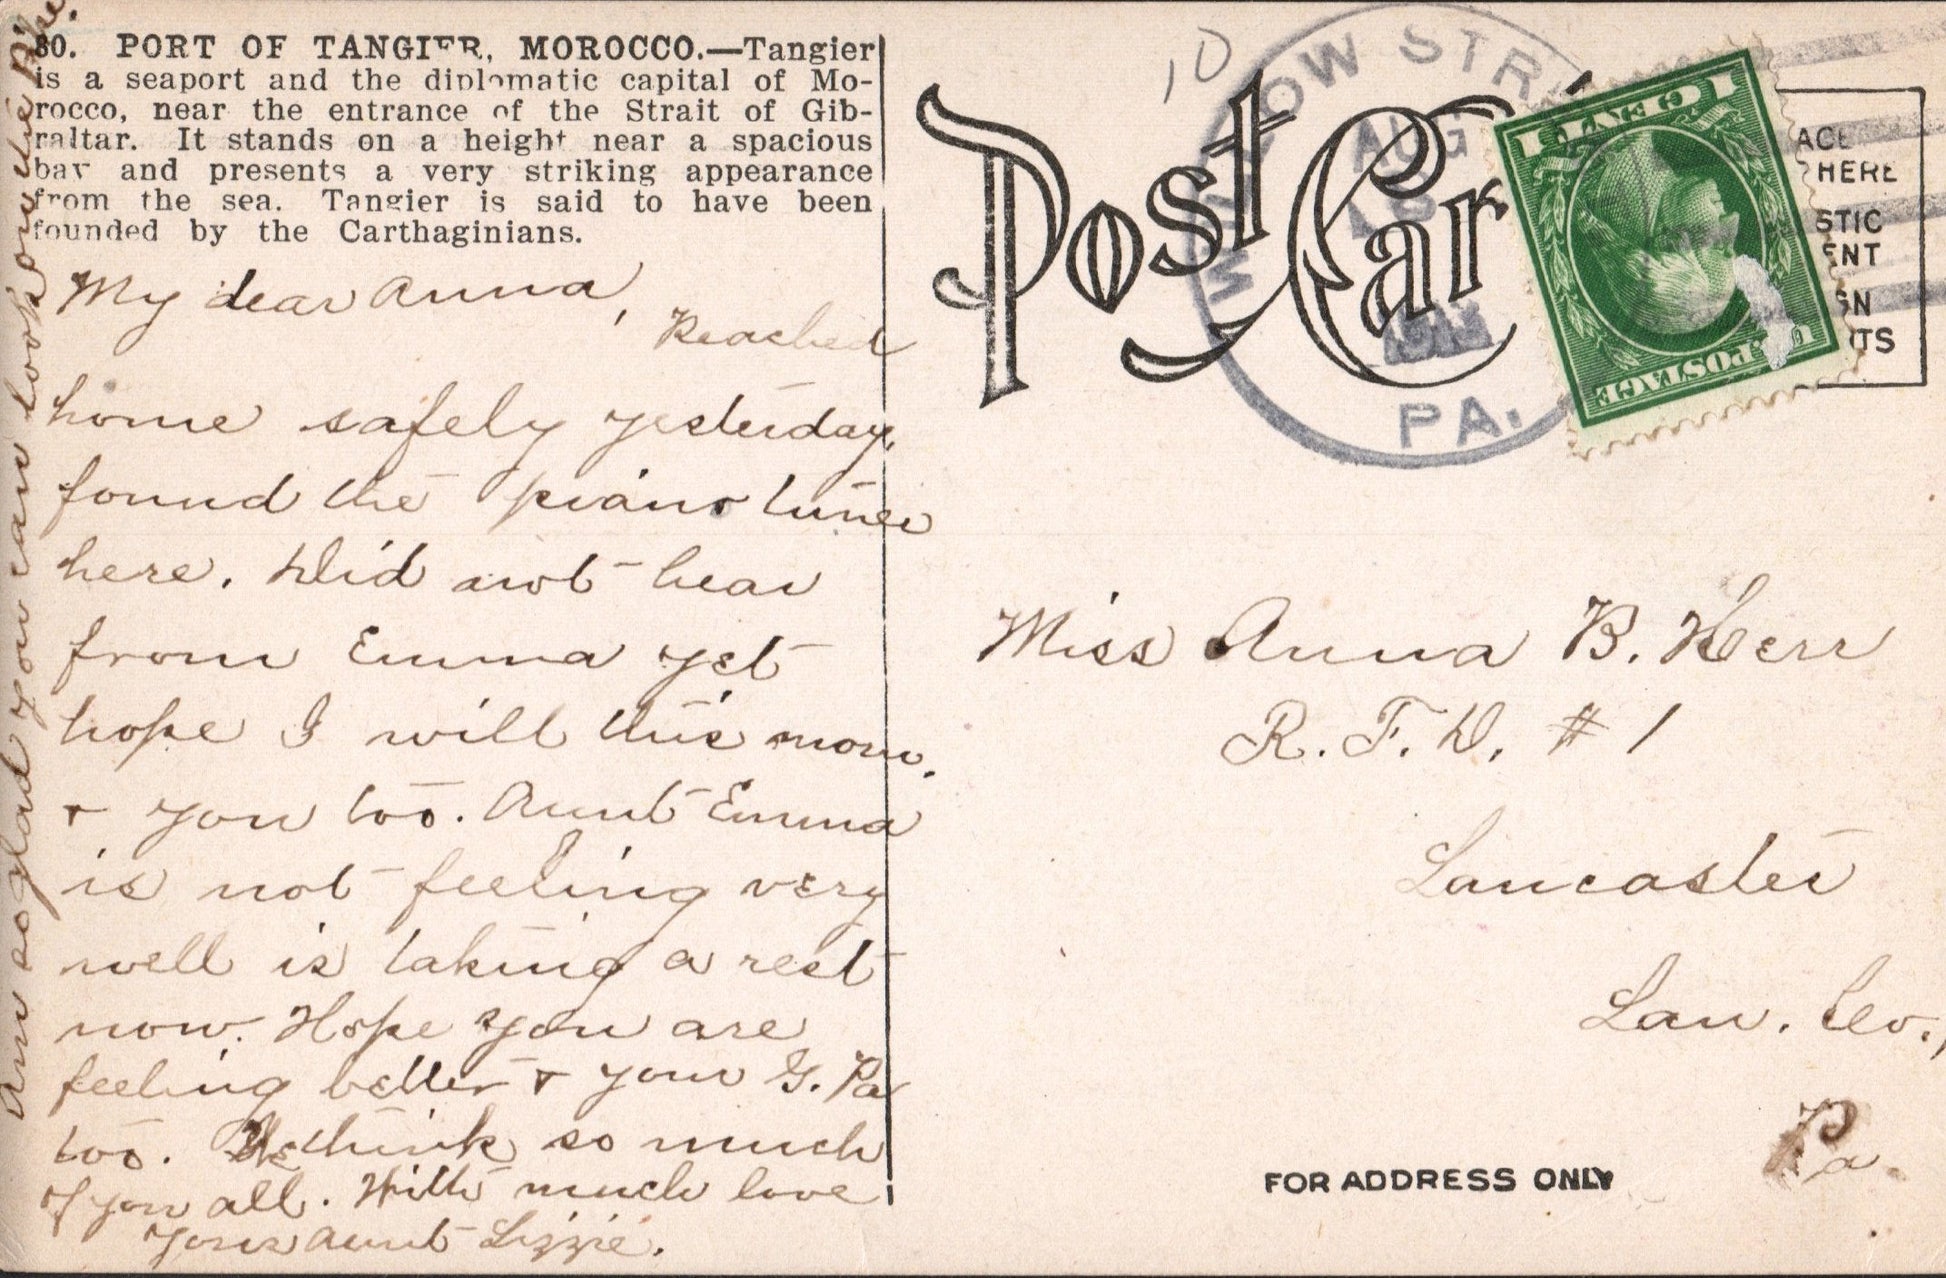 80. PORT OF TANGIER, MOROCCO.—Tangier
is a seaport and the diplomatic capital of Mo-
rocco, near the entrance of the Strait of Gib-
raltar. It stands on a height near a spacious
bay and presents a very striking appearance
from the sea. Tangier is said to have been
founded by the Carthaginians.
My dear Anna,
Reached
home safely yesterday,
found the piano tuner
here. Did not hear
from Emma yet
hope I will this morn.
+ you too. Aunt Emma
is not feeling very
well is taking a rest
now. Hope you are
feeling better + your G. Pa
too. We think so much
of you all. With much love
Your aunt Lizzie.
Am so glad you can look on the
Post Car
10
WILLOW STR
AUG
1913
PA.
1 CENT 1
U.S. POSTAGE
ACE
HERE
STIC
ENT
GN
TS
Miss Anna B. Herr
R. F. D. # 1
Lancaster
Lan. Co.,
Pa.
FOR ADDRESS ONLY